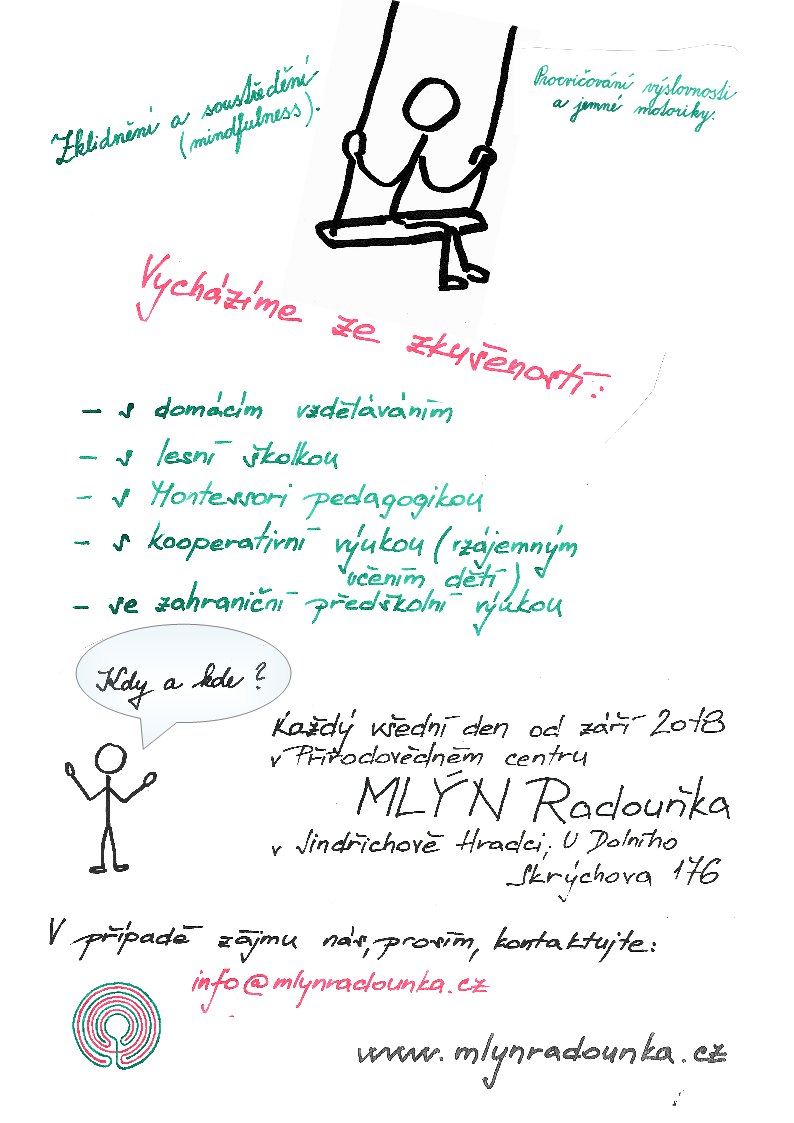 Zklidnění a soustředění
(mindfulness).
Procvičování výslovnosti
a jemné motoriky.
Vycházíme ze zkušeností:
- s domácím vzděláváním
- s lesní školkou
- s Montessori pedagogikou
- s kooperativní výukou (vzájemným
učením dětí)
- se zahraniční předškolní výukou
Kdy a kde?
Každý všední den od září 2018
v Přírodovědném centru
MLÝN Radouňka
v Jindřichově Hradci, U Dolního
Skrýchova 176
V případě zájmu nás, prosím, kontaktujte:
info@mlynradounka.cz
www.mlynradounka.cz